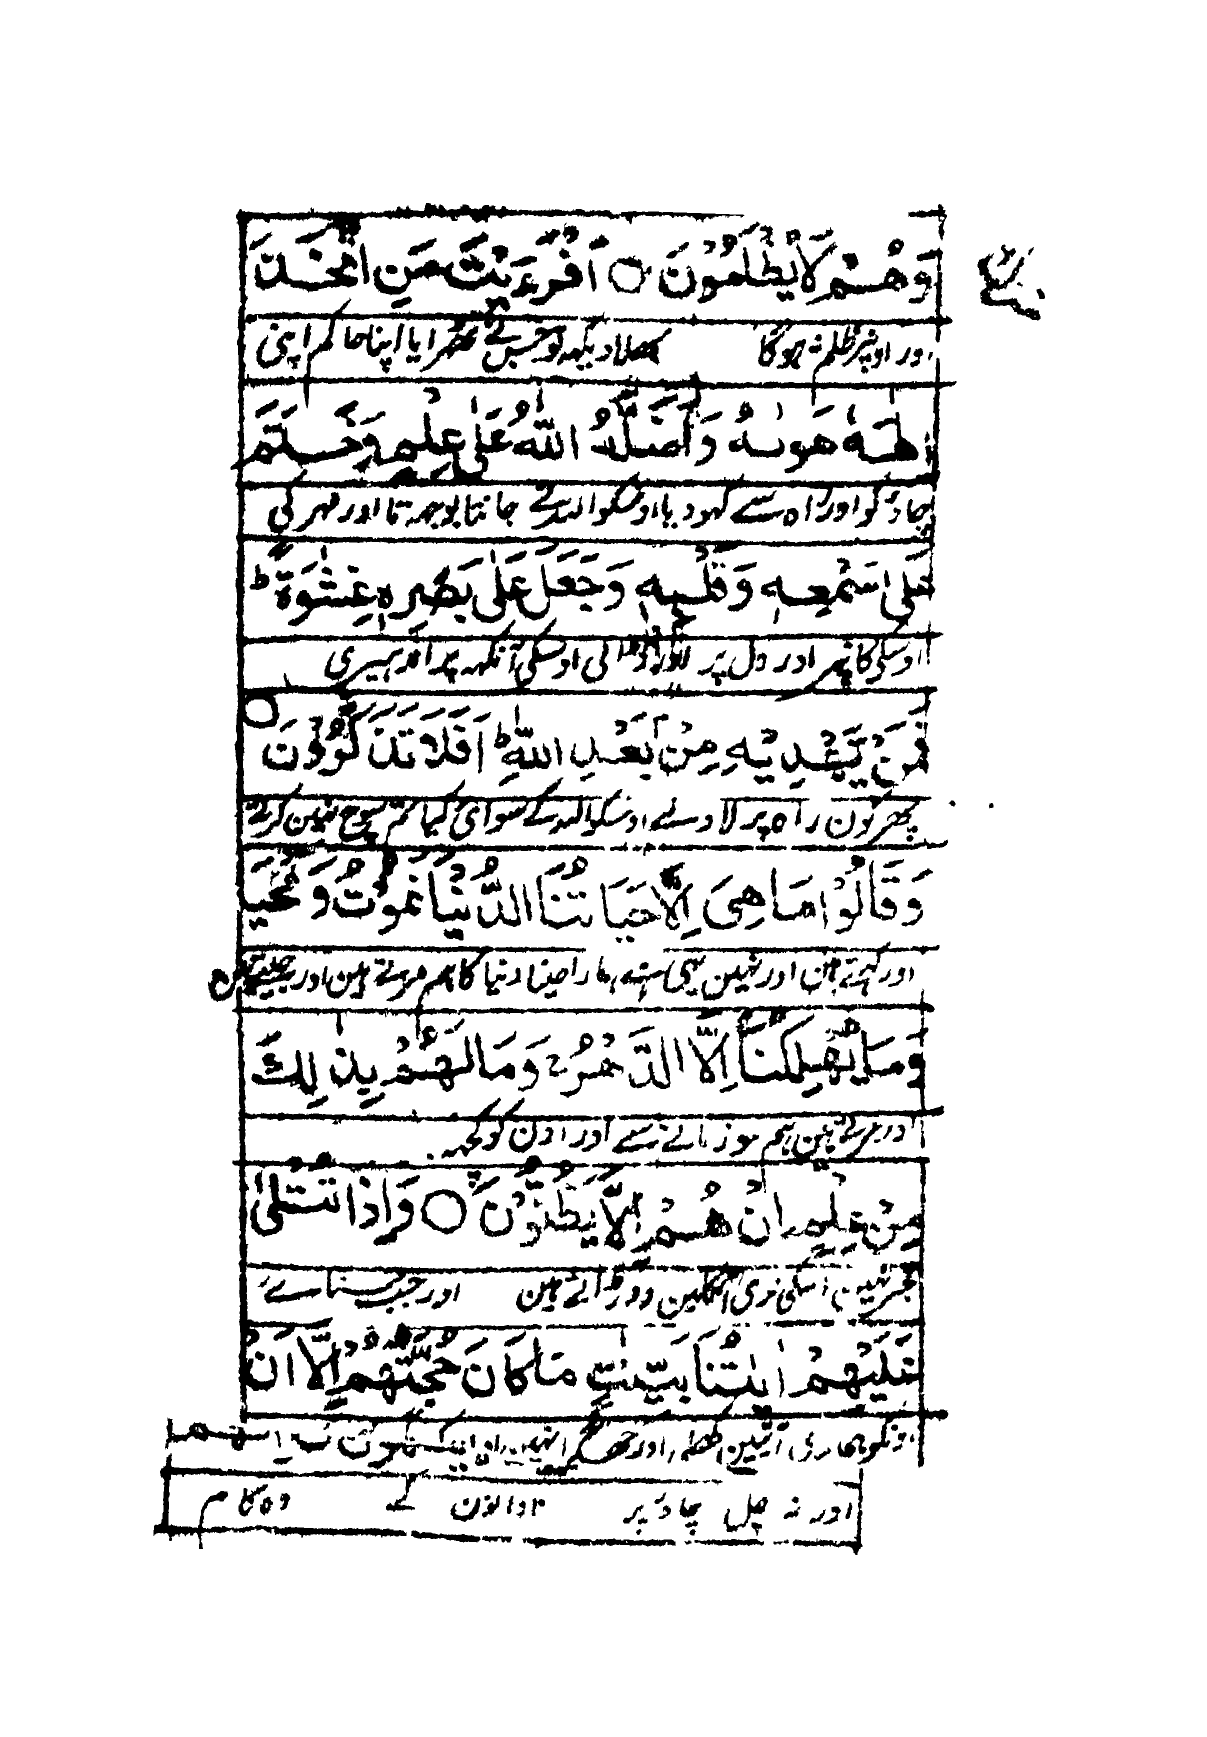 وَهُمْ لَا يُظْلَمُوْنَ ○ اَفَرَءَيْتَ مَنِ اتَّخَذَ
اور اونپر ظلم نہ ہوگا بھلا دیکھہ تو جسنے ٹھہرایا اپنا حاکم اپنی
اِلٰهَهٗ هَوٰىهُ وَاَضَلَّهُ اللّٰهُ عَلٰى عِلْمٍ وَّخَتَمَ
چاؤ کو اور راہ سے کہودیا اوسکو اللہ نے جانتا بوجہتا اور مہر کی
عَلٰى سَمْعِهٖ وَقَلْبِهٖ وَجَعَلَ عَلٰى بَصَرِهٖ غِشٰوَةً ؕ
اوسکی کان پر اور دل پر اور ڈالی اوسکی آنکہہ پر اندہیری
فَمَنْ يَّهْدِيْهِ مِنْۢ بَعْدِ اللّٰهِ ؕ اَفَلَا تَذَكَّرُوْنَ ○
پھر کون راہ پر لاوے اوسکو اللہ کے سوائ کیا تم سوچ نہین کرتے
وَقَالُوْا مَا هِىَ اِلَّا حَيَاتُنَا الدُّنْيَا نَمُوْتُ وَنَحْيَا
اور کہتے ہین اور نہین یہی ہے ہمارا جینا دنیا کا ہم مرتے ہین اور جیتے ہین
وَمَا يُهْلِكُنَآ اِلَّا الدَّهْرُ ۚ وَمَا لَهُمْ بِذٰلِكَ
اور مرتے ہین ہم سو زمانے سے اور اون کو کچہہ
مِنْ عِلْمٍ اِنْ هُمْ اِلَّا يَظُنُّوْنَ ○ وَاِذَا تُتْلٰى
خبر نہین اسکی نری اٹکلین دوڑاتے ہین اور جب سناے
عَلَيْهِمْ اٰيٰتُنَا بَيِّنٰتٍ مَّا كَانَ حُجَّتَهُمْ اِلَّآ اَنْ
اونکو ہماری آیتین کھلی اور
اور نہ چل چاؤ پر نادانون کے وہ کام